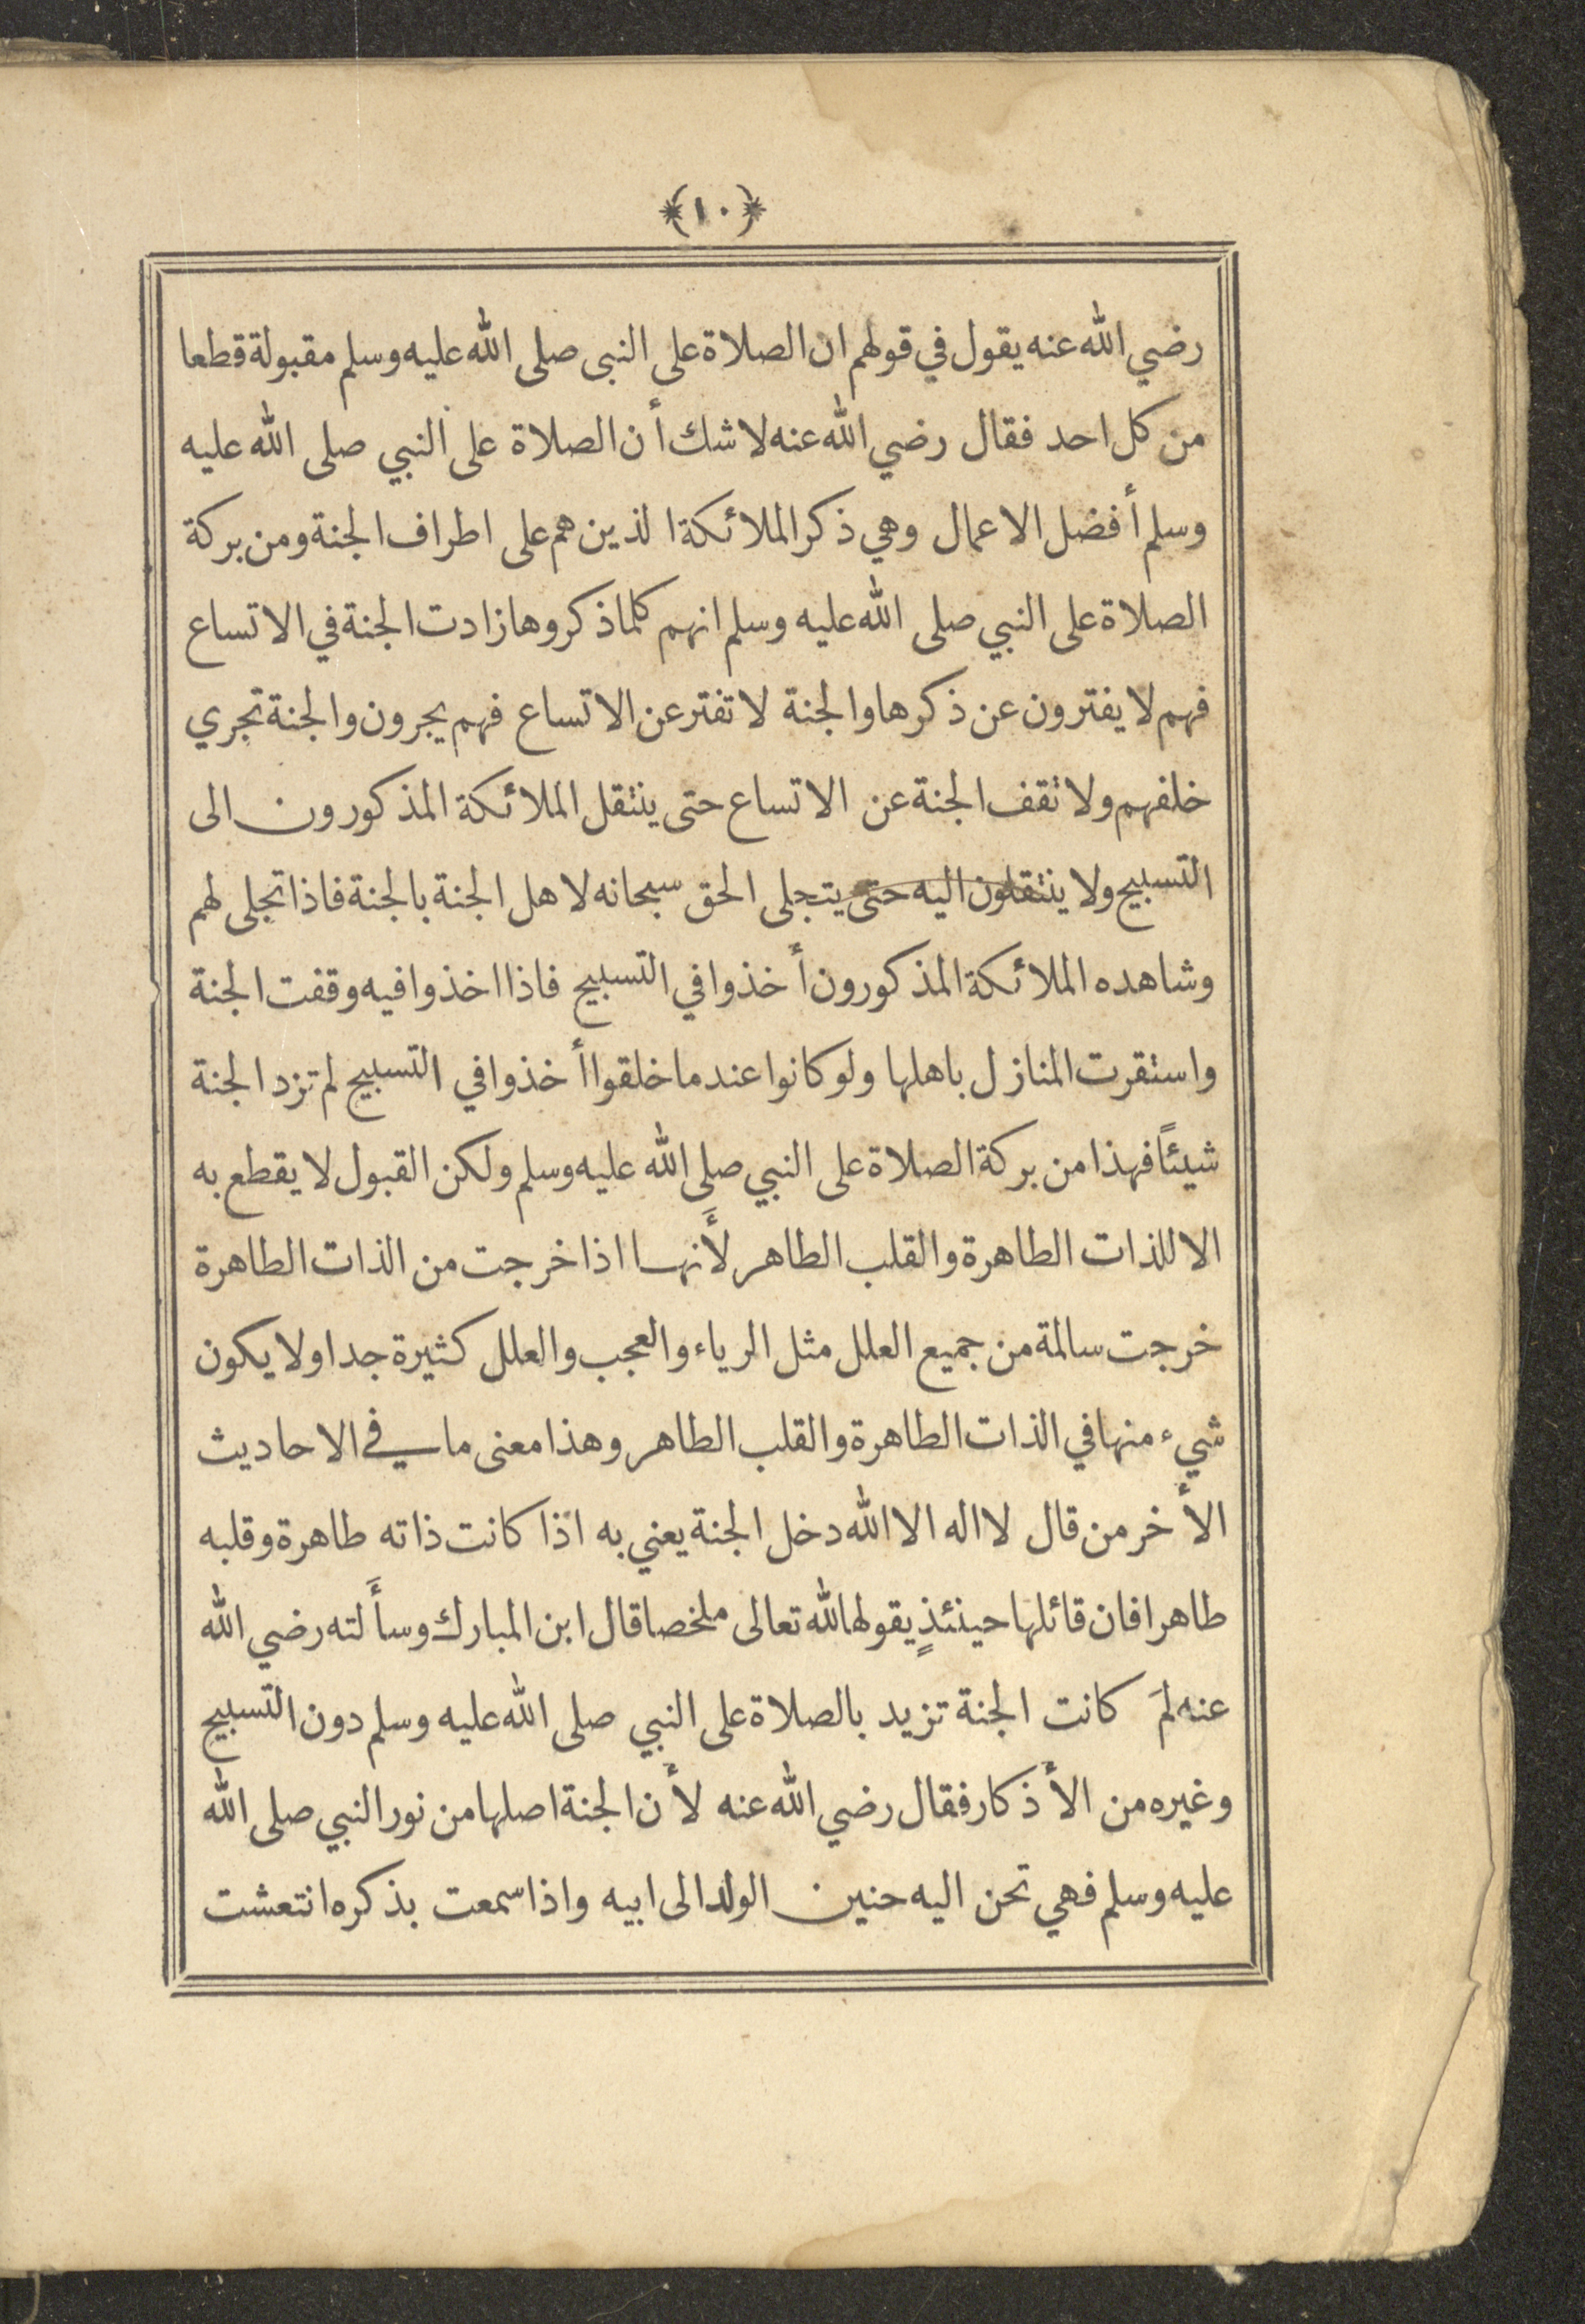 ﴿١٠﴾
رضي الله عنه يقول في قولهم ان الصلاة على النبي صلى الله عليه وسلم مقبولة قطعا
من كل احد فقال رضي الله عنه لا شك أن الصلاة على النبي صلى الله عليه
وسلم أفضل الاعمال وهي ذكر الملائكة الذين هم على اطراف الجنة ومن بركة
الصلاة على النبي صلى الله عليه وسلم انهم كلما ذكروها زادت الجنة في الاتساع
فهم لا يفترون عن ذكرها والجنة لا تفتر عن الاتساع فهم يجرون والجنة تجري
خلفهم ولا تقف الجنة عن الاتساع حتى ينتقل الملائكة المذكورون الى
التسبيح ولا ينتقلون اليه حتى يتجلى الحق سبحانه لاهل الجنة بالجنة فاذا تجلى لهم
وشاهده الملائكة المذكورون أخذوا في التسبيح فاذا اخذوا فيه وقفت الجنة
واستقرت المنازل باهلها ولو كانوا عند ما خلقوا أخذوا في التسبيح لم تزد الجنة
شيئاً فهذا من بركة الصلاة على النبي صلى الله عليه وسلم ولكن القبول لا يقطع به
الا للذات الطاهرة والقلب الطاهر لأَنها اذا خرجت من الذات الطاهرة
خرجت سالمة من جميع العلل مثل الرياء والعجب والعلل كثيرة جدا ولا يكون
شيء منها في الذات الطاهرة والقلب الطاهر وهذا معنى ما في الاحاديث
الأخر من قال لا اله الا الله دخل الجنة يعني به اذا كانت ذاته طاهرة وقلبه
طاهرا فان قائلها حينئذٍ يقولها لله تعالى ملخصا قال ابن المبارك وسأَلته رضي الله
عنه لمَ كانت الجنة تزيد بالصلاة على النبي صلى الله عليه وسلم دون التسبيح
وغيره من الأذكار فقال رضي الله عنه لأن الجنة اصلها من نور النبي صلى الله
عليه وسلم فهي تحن اليه حنين الولد الى ابيه واذا سمعت بذكره انتعشت